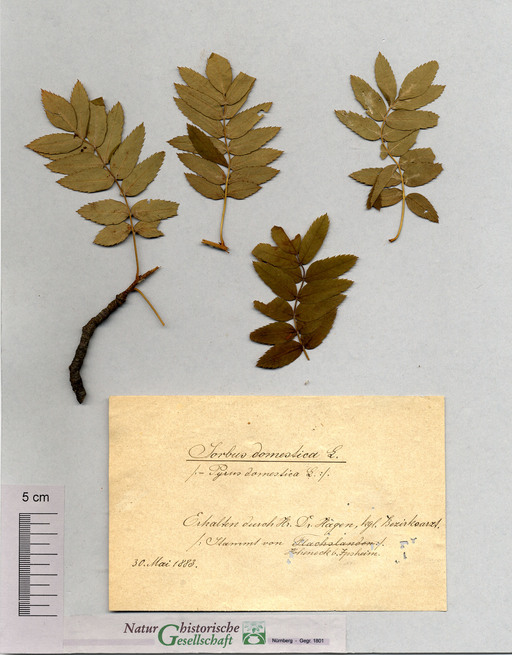 Sorbus domestica L.
/:= Pyrus domestica L. :/.
Erhalten durch H. Dr. Hagen, kgl. Bezirksarzt.
/: Stammt von Flachslanden :/.
Hoheneck b. Ipsheim
30. Mai 1888.
5 cm
Naturhistorische
Gesellschaft
Nürnberg - Gegr. 1801